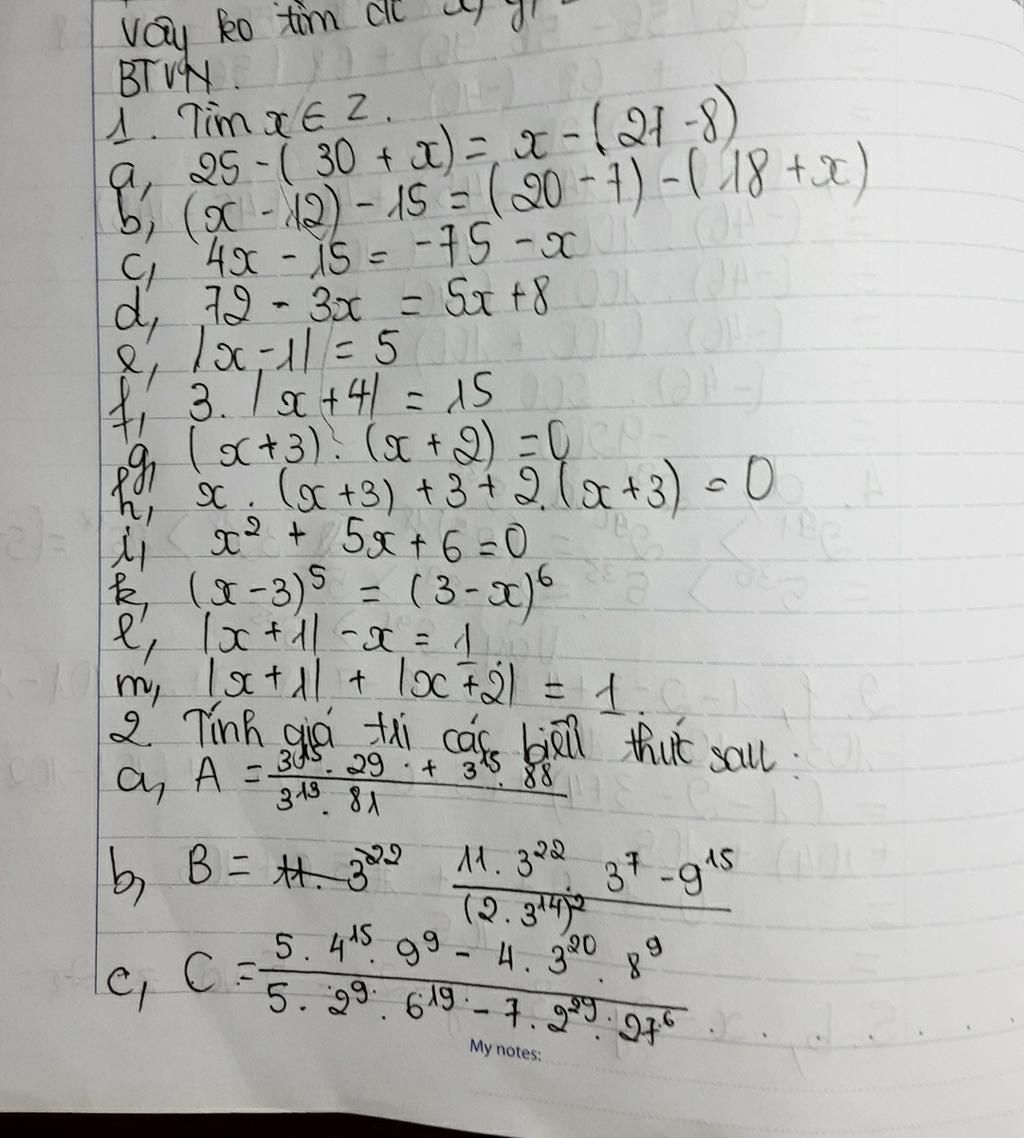 Vậy ko tìm đc x, y,
BTVN.
1. Tìm x ∈ Z.
a, 25 - (30 + x) = x - (27 - 8)
b, (x - 12) - 15 = (20 - 7) - (18 + x)
c, 4x - 15 = -75 - x
d, 72 - 3x = 5x + 8
e, |x - 1| = 5
f, 3. |x + 4| = 15
g, (x + 3). (x + 2) = 0
h, x. (x + 3) + 3 + 2.(x + 3) = 0
i, x² + 5x + 6 = 0
k, (x - 3)⁵ = (3 - x)⁶
l, |x + 1| - x = 1
m, |x + 1| + |x + 2| = 1.
2. Tính giá trị các biểu thức sau:
a, A = 3¹⁵. 29 + 3¹⁵. 88
3¹³. 81
b, B = 11. 3²² 11. 3²². 3⁷ - 9¹⁵
(2. 3¹⁴)²
c, C = 5. 4¹⁵. 9⁹ - 4. 3²⁰. 8⁹
5. 2⁹. 6¹⁹ - 7. 2²⁹. 27⁶
My notes: